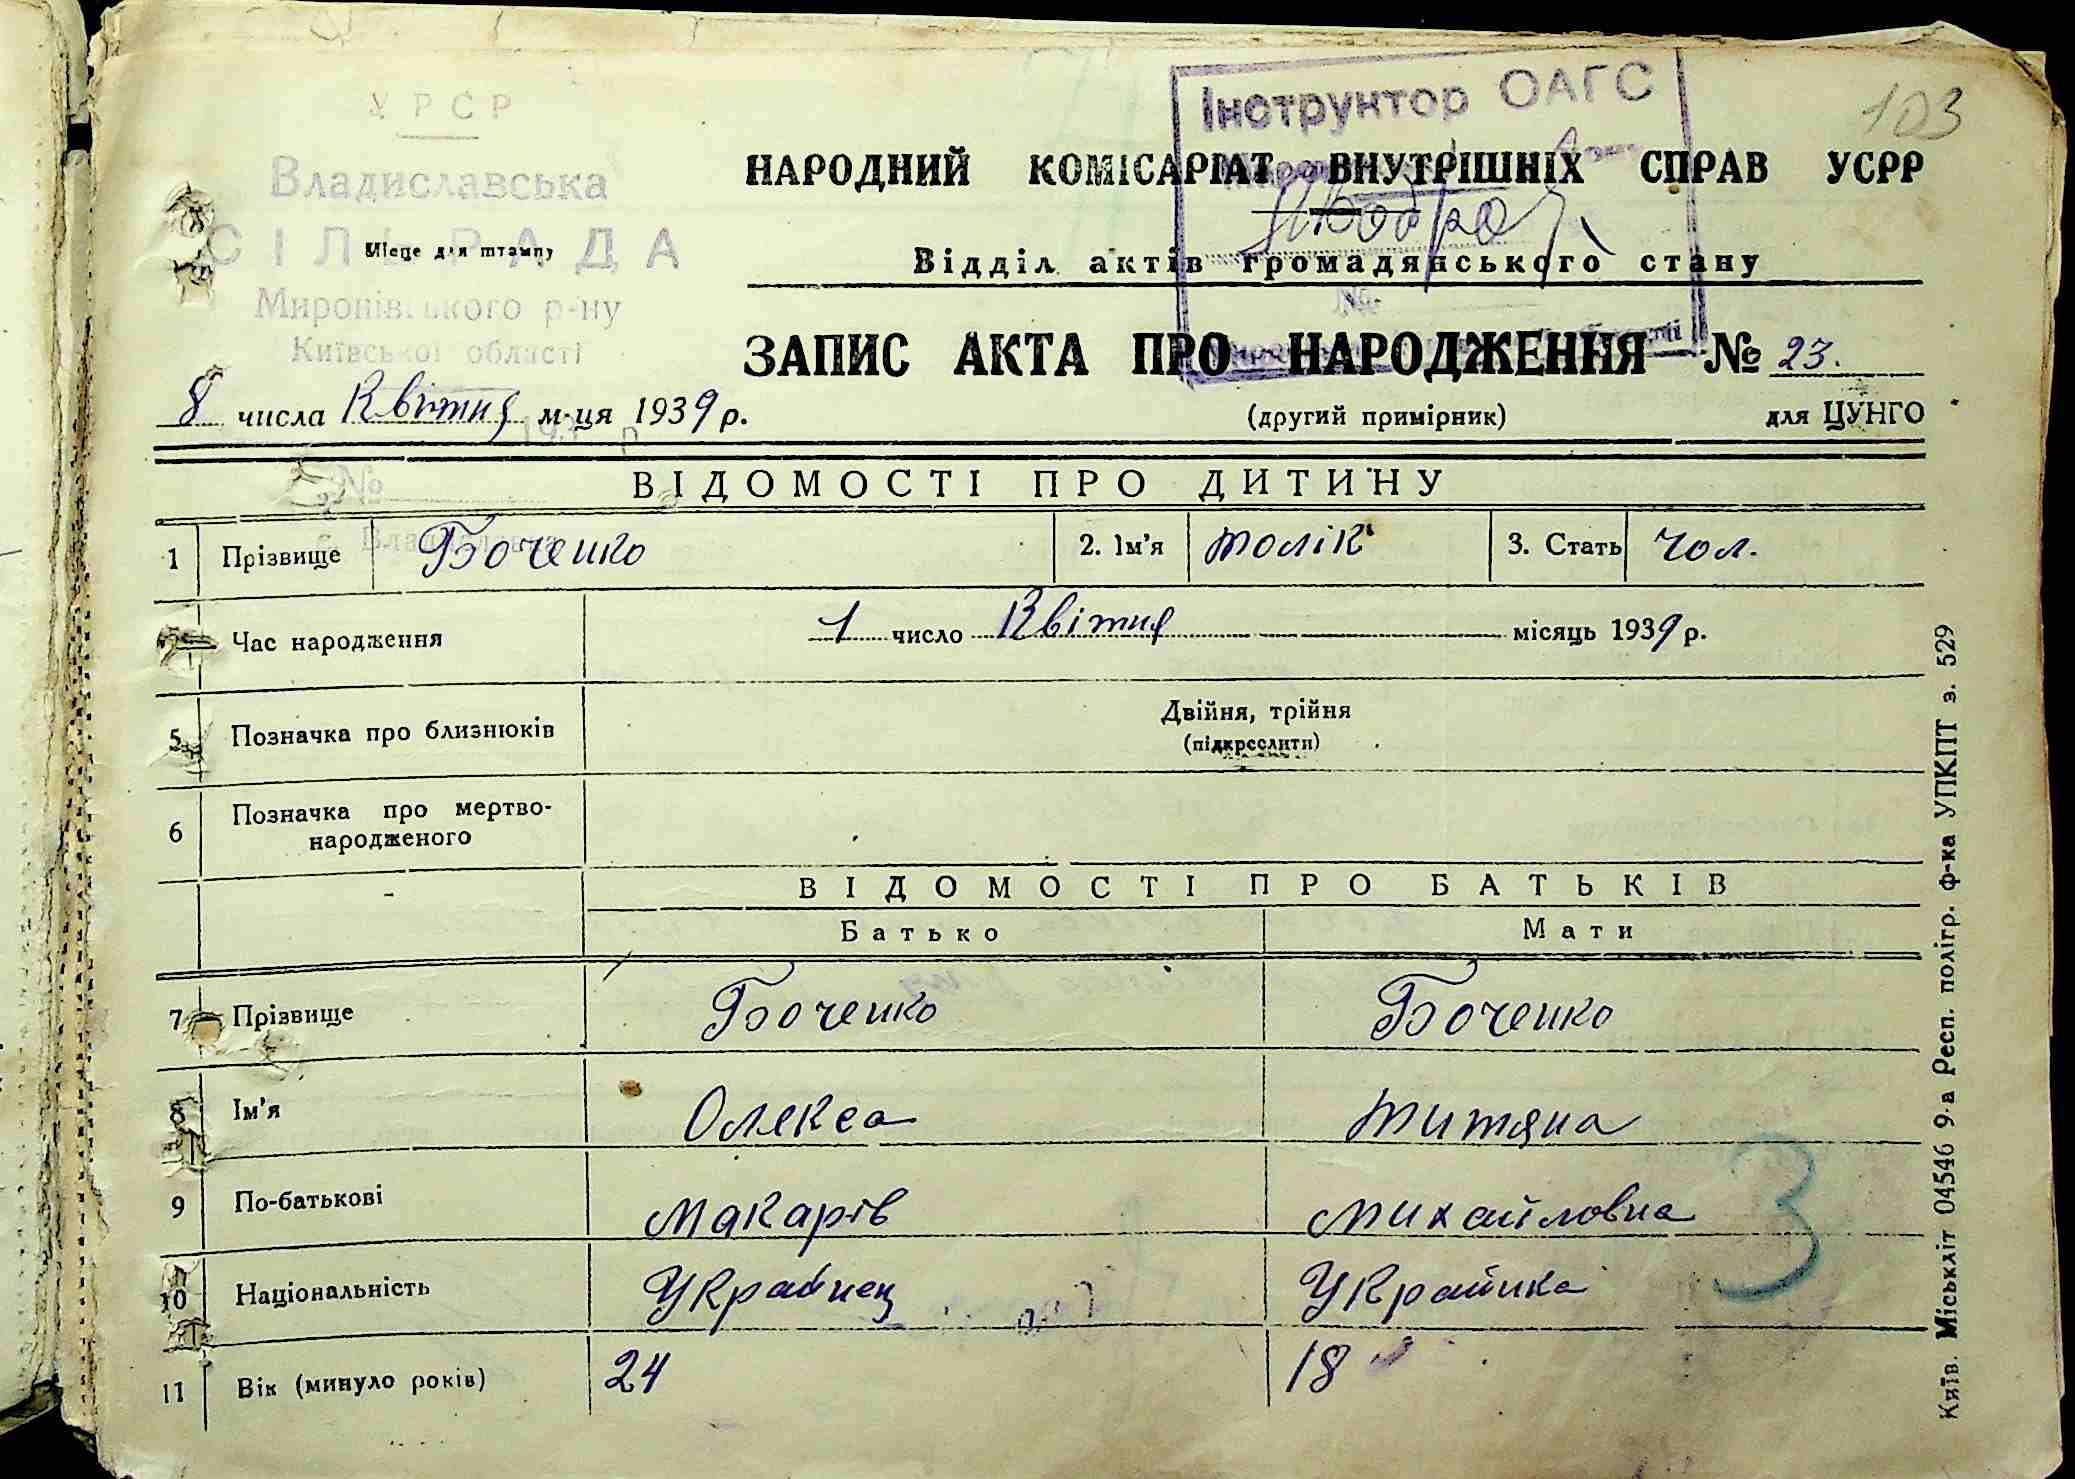 103
УРСР
Владиславська
СІЛЬРАДА
Місце для штампу
Миронівського р-ну
Київської області
Інструктор ОАГС
НАРОДНИЙ КОМІСАРІАТ ВНУТРІШНІХ СПРАВ УСРР
Відділ актів громадянського стану
№
ЗАПИС АКТА ПРО НАРОДЖЕННЯ № 23.
8 числа Квітня м-ця 1939 р.
(другий примірник) для ЦУНГО
№
ВІДОМОСТІ ПРО ДИТИНУ
1 Прізвище Боченко 2. Ім'я Толік 3. Стать чол.
Час народження 1 число Квітня місяць 1939 р.
5 Позначка про близнюків Двійня, трійня
(підкреслити)
6 Позначка про мертво-
народженого
ВІДОМОСТІ ПРО БАТЬКІВ
Батько Мати
7 Прізвище Боченко Боченко
8 Ім'я Олекса Титяна
9 По-батькові Макарів Михайловна
10 Національність Українец Украйинка
11 Вік (минуло років) 24 18
3
Київ. Міськліт 04546 9-а Респ. полігр. ф-ка УПКПТ з. 529